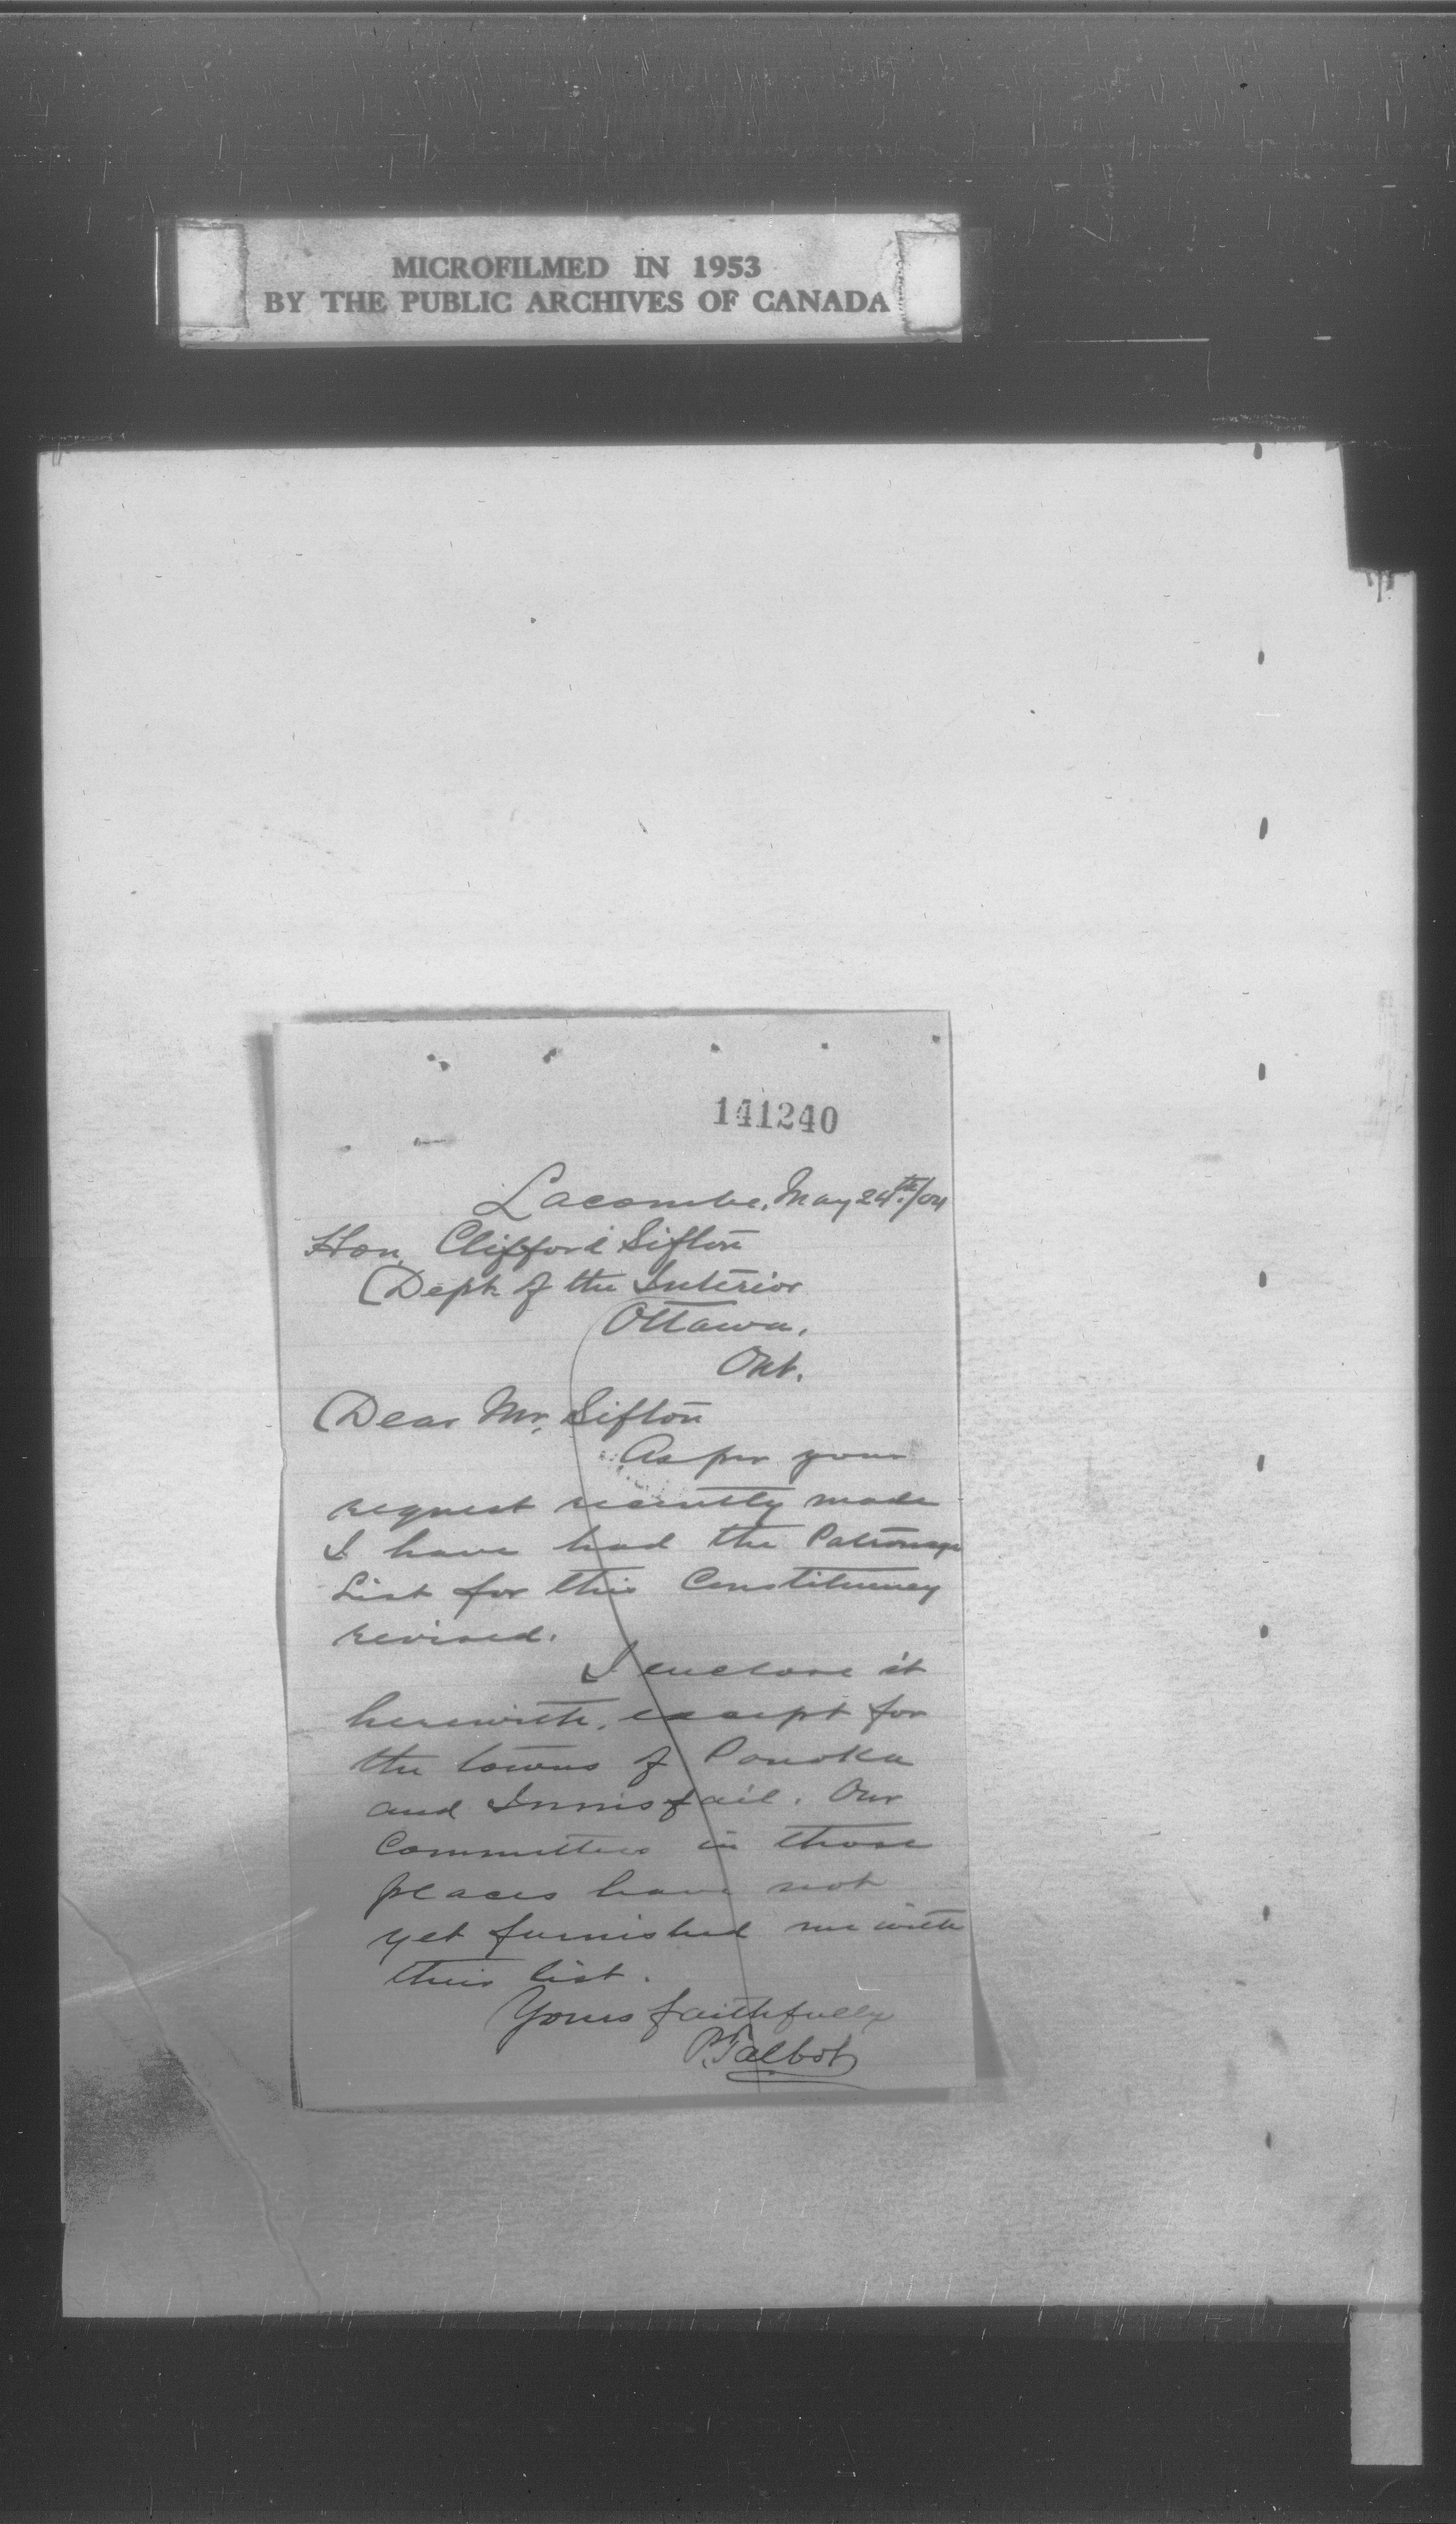 MICROFILMED IN 1953
BY THE PUBLIC ARCHIVES OF CANADA
141240
Lacombe, May 24th/04
Hon. Clifford Sifton
Dept. of the Interior
Ottawa,
Ont.
Dear Mr. Sifton
As per your
request recently made
I have had the Patronage
List for this Constituency
revised.
I enclose it
herewith, except for
the towns of Ponoka
and Innisfail. Our
Committees in those
places have not
yet furnished me with
their list.
Yours faithfully
P. Talbot